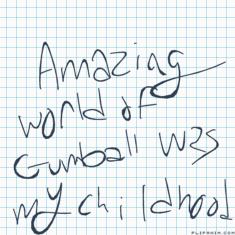 Amazing
world of
Gumball was
my childhood
FLIPANIM.COM